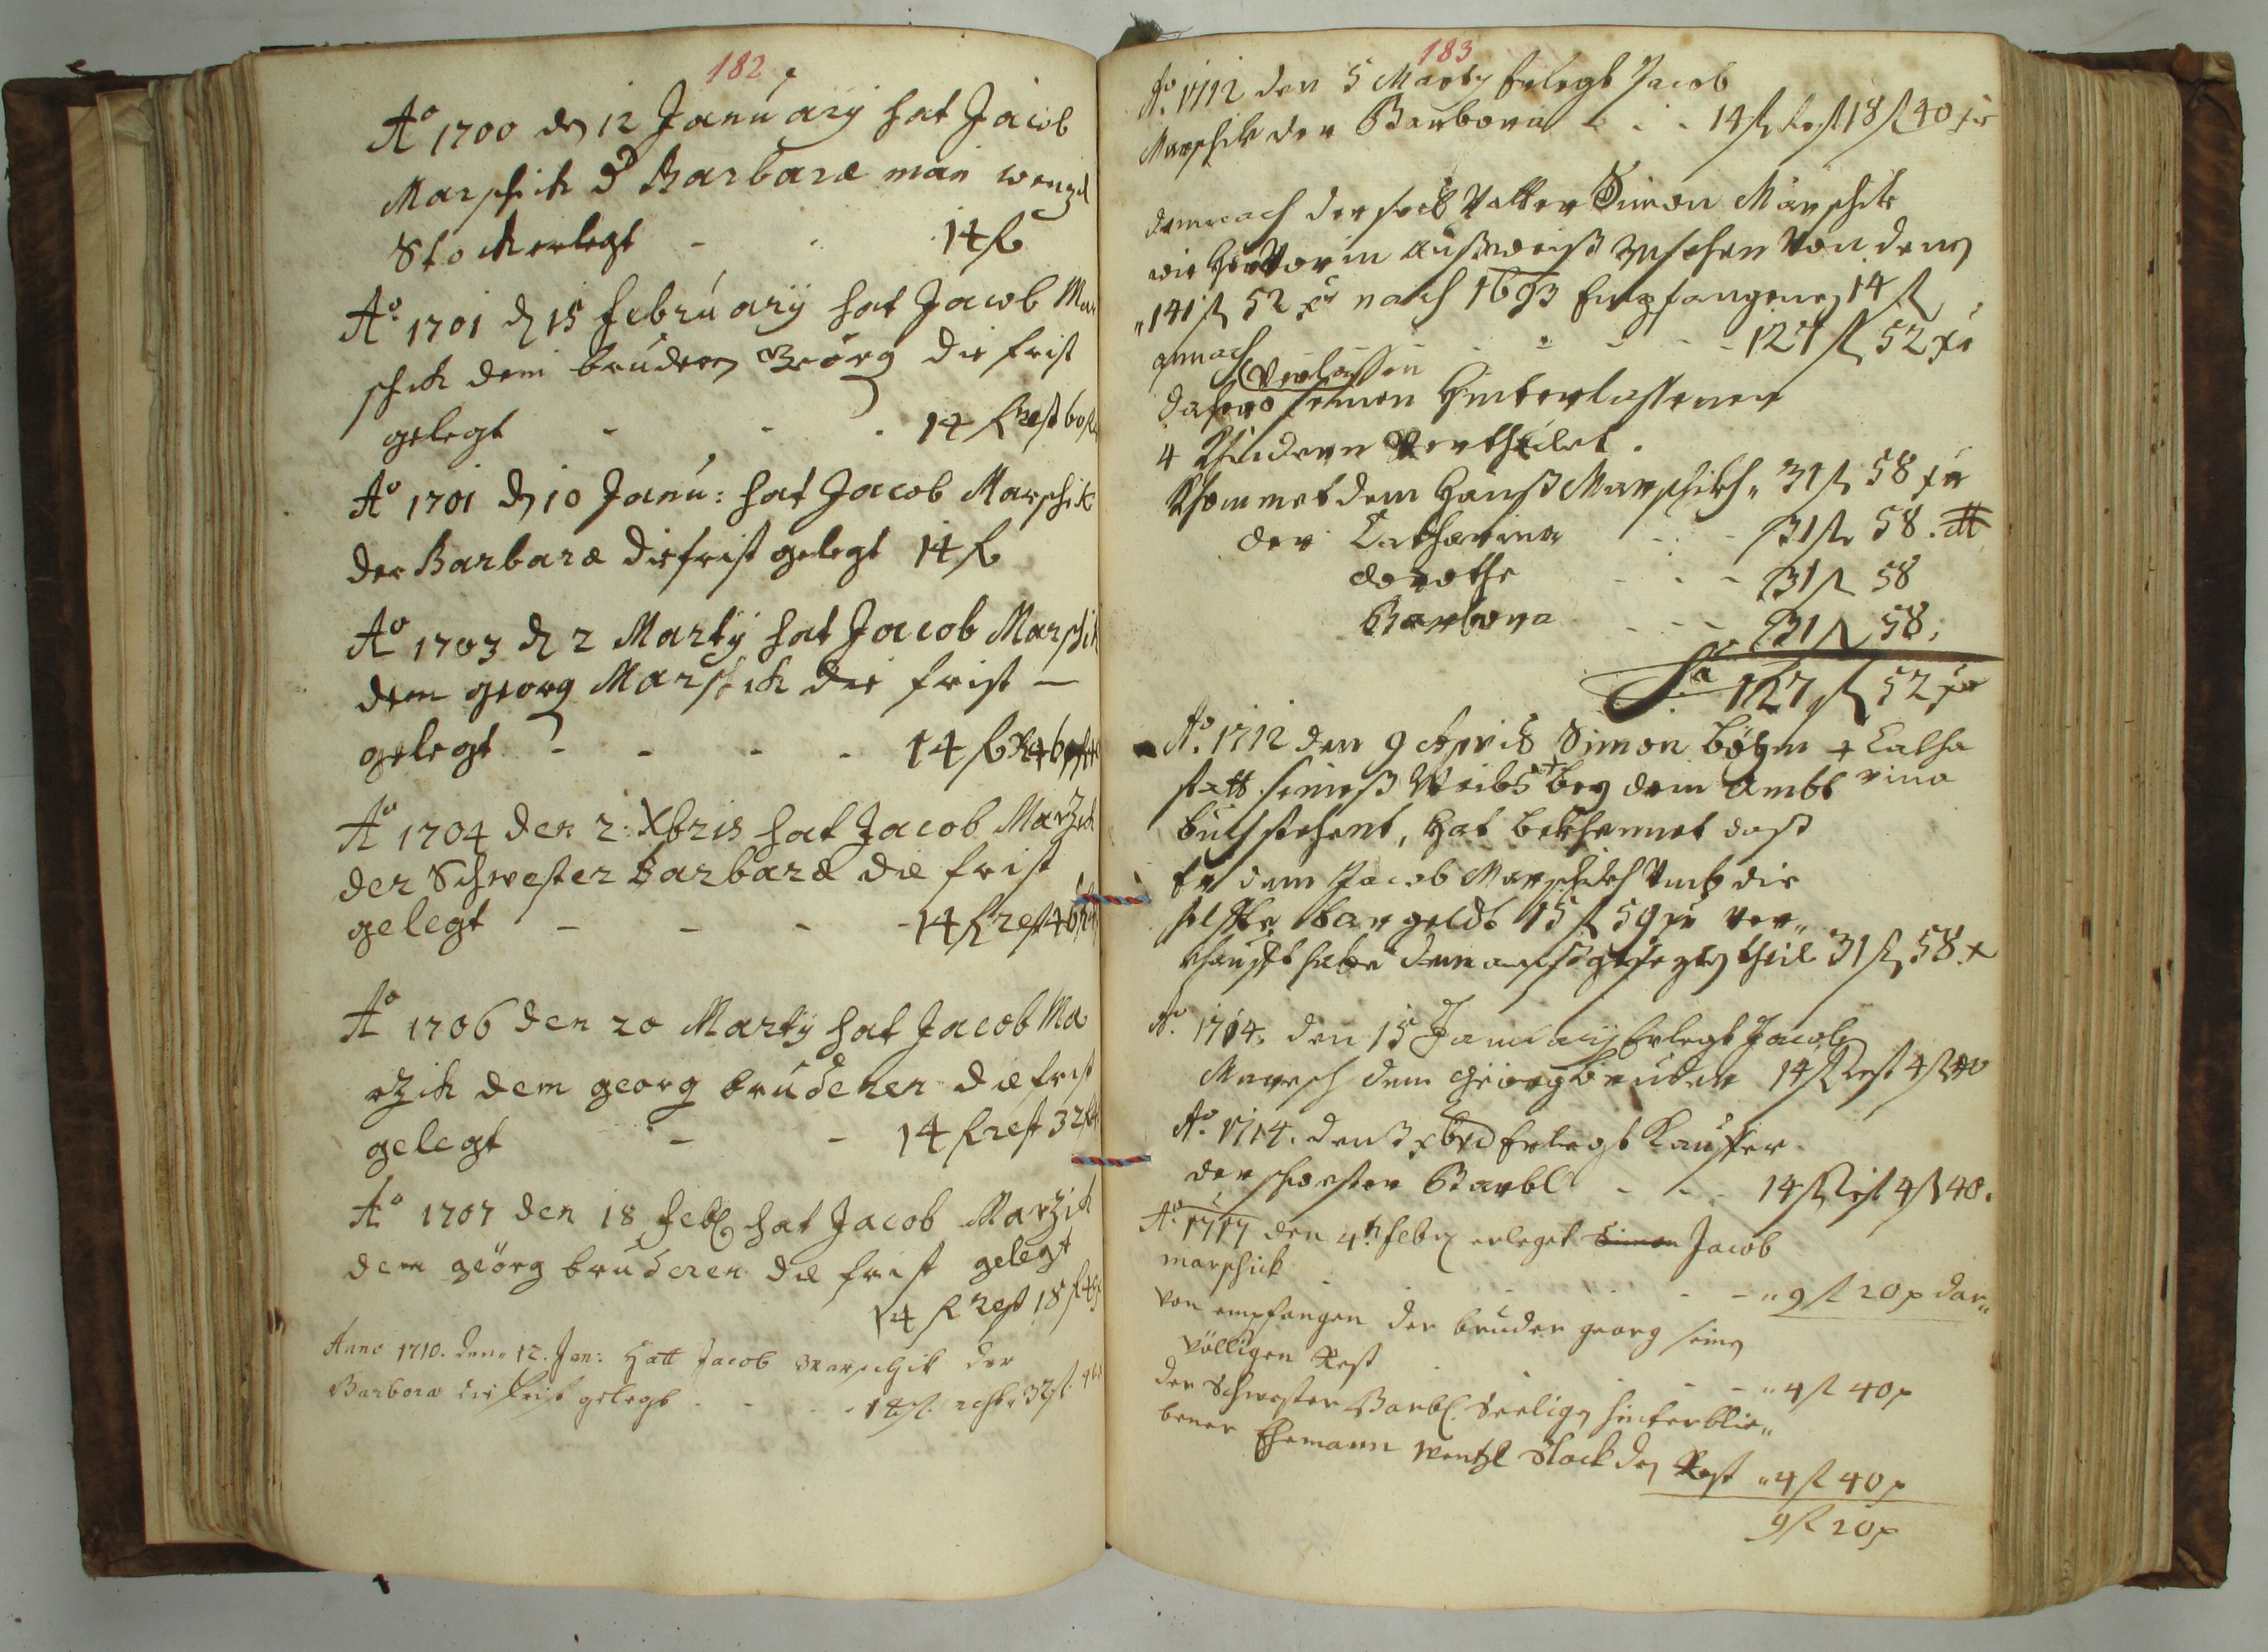 182
A° 1700 dn 12 Januarÿ hat Jacob
Marschik d Barbaræ man wenzl
Stok erlegt - - 14 fl
A° 1701 dn 15 februarÿ hat Jacob Mar
schik dem brudern Georg die frist
gelegt - - 14 fl rest 60 fl
A° 1701 dn 10 Janu: hat Jacob Marschik
der Barbaræ die frist gelegt 14 fl
A° 1703 dn 2 Martÿ hat Jacob Marschik
dem georg Marschik die frist —
gelegt - - - - 14 fl
A° 1704 den 2: Xbris hat Jacob Marzik
der Schwester Barbaræ die frist
gelegt - - - - 14 fl rest 46
A° 1706 den 20 Martÿ hat Jacob Ma
rzik dem georg bruderen die frist
gelegt - - 14 fl rest 32 fl
A° 1707 den 18 febl hat Jacob Marzik
dem geörg bruderen die frist gelegt
14 fl rest 18 fl
Anno 1710. den 12. Jan: Hatt Jacob Marschik der
Barbora die frist gelegt - - - 14 fl. rest 32 fl.
183
A°. 1712 den 5 Martÿ Erlegt Jacob
Marschik der Barbora - - 14 fl rest 18 fl 40 xr
demnach der Vatter Simon Marschik
wie hervorin außweist von denen
141 fl 52 xr nach 1693 Empfangenen 14 fl
annach - - - - - 127 fl 52 xr
verlassen
dahero seinen Hinterlassenen
4 Khindern vertheilet.
Khommet dem Hanß Marschikh 31 fl 58 xr
der Catharina - - 31 fl 58.
dorothe - - - 31 fl 58
Barbora - - - 31 fl 58.
Sa 127 fl 52 xr
A°. 1712 den 9 Aprils Simon böhm + Catha
statt seineß Weibs + bey dem Ambt rina
buch stehent, Hat bekhennet daß
Er dem Jacob Marschikh Umb die
helffte bar geldt 15 fl 59 xr ver„
khaufft habe theil 31 fl 58 x
A°. 1714. den 15 Januarÿ Erlegt Jacob
Marsch dem Georg bruder 14 fl Rest 4 fl 40
A°. 1714. den 3 xbris Erlegt Kauffer
der schwester Barbl - - - 14 fl Rest 4 fl 40.
A°. 1717 den 4t febr erleget Simon Jacob
marschick - - - - - „9 fl 20 x dar„
von empfangen der bruder georg seinen
völligen Rest - - - „4 fl 40 x
der Schwester Barbl. Seeligen hinterblie„
bener Ehemann Wentzl Stock den Rest „4 fl 40 x
9 fl 20 x